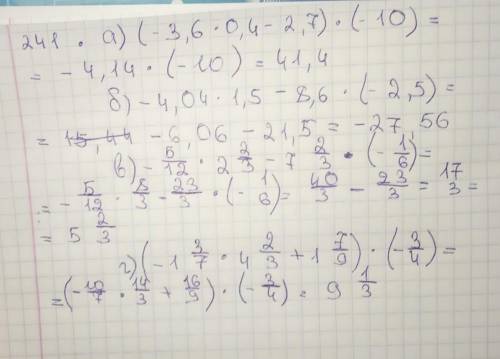 241. а) (-3,6 · 0,4 - 2,7) · (-10) =
= - 4,14 · (-10) = 41,4
б) - 4,04 · 1,5 - 8,6 · (- 2,5) =
= 15,44 - 6,06 - 21,5 = - 27,56
в) - 5/12 · 2 2/3 - 7 2/3 · (- 1/6) =
= - 5/12 · 8/3 - 23/3 · (- 1/6) = 40/3 - 23/3 = 17/3 =
= 5 2/3
г) (- 1 3/7 · 4 2/3 + 1 7/9) · (- 3/4) =
= (- 10/7 · 14/3 + 16/9) · (- 3/4) = 9 1/3